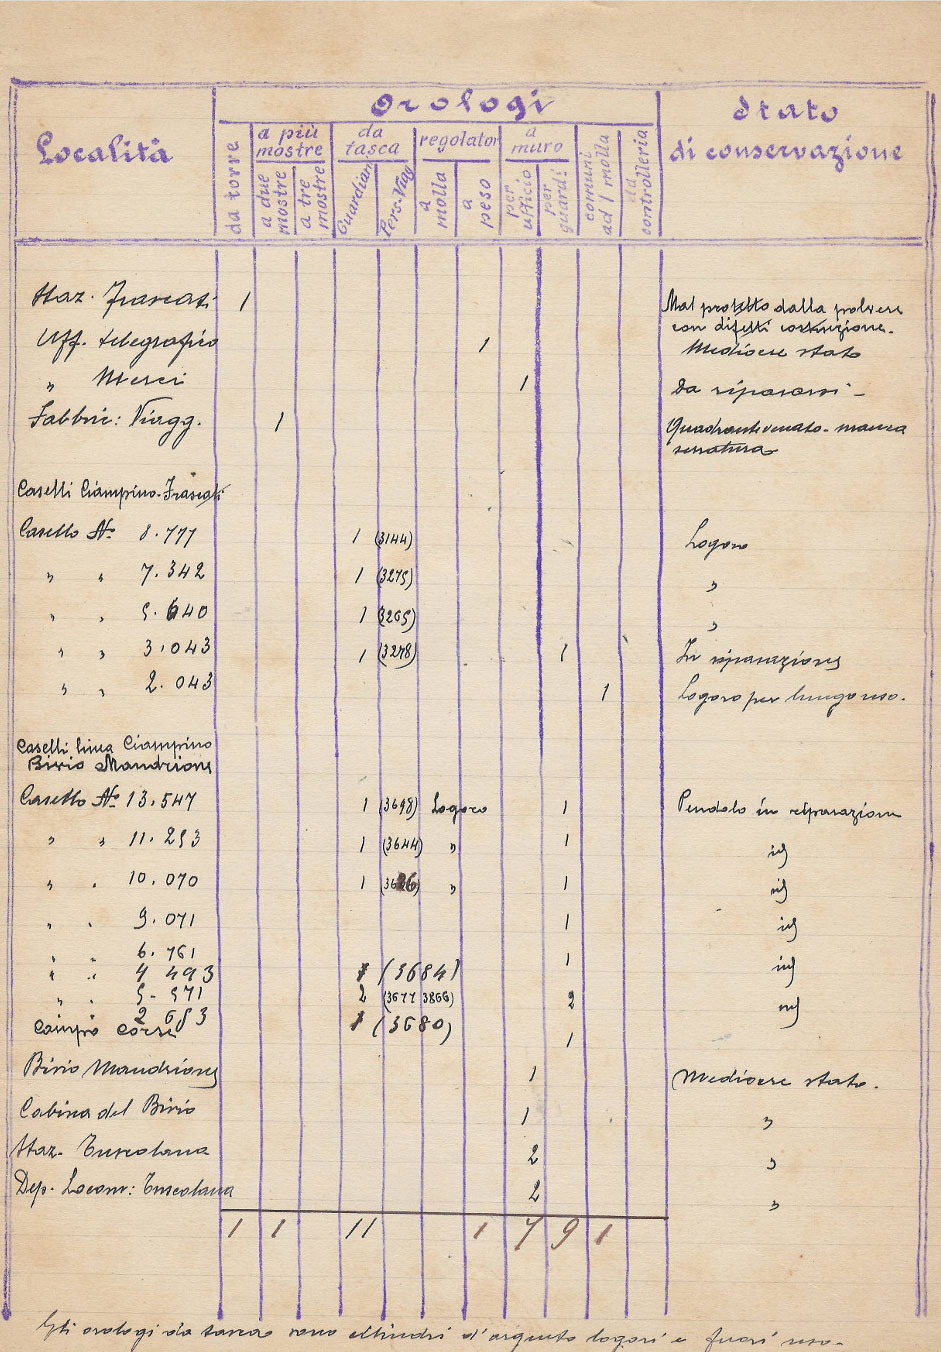 Località
Orologi
Stato
di conservazione
da torre
a più mostre
a due mostre
a tre mostre
da tasca
Guardiani
Pers. Viagg
regolatori
a molla
a peso
a muro
per ufficio
per guardi.
comuni ad 1 molla
da controlleria
Staz. Frascati 1 Mal protetto dalla polvere
con difetti costruzione.
Uff. telegrafico 1 Mediocre stato
" Merci 1 Da ripararsi -
Fabbric: Viagg. 1 Quadrante venato - manca
serratura
Caselli Ciampino-Frascati
Casello N° 8.777 1 (3144) Logoro
" " 7.342 1 (3275) "
" " 5.640 1 (3265) "
" " 3.043 1 (3278) 1 In riparazione
" " 2.043 1 Logoro per lungo uso.
Caselli linea Ciampino
Bivio Mandrione
Casello N° 13.547 1 (3698) Logoro 1 Pendolo in riparazione
" " 11.253 1 (3644) " 1 id
" " 10.070 1 " 1 id
" " 9.071 1 id
" " 6.761 1 id
" " 4 493 1 (3684)
" " 5.571 2 (3677 3866) 2 id
2 683 1 (3680)
Campo Corse 1
Bivio Mandrione 1 Mediocre stato.
Cabina del Bivio 1 "
Staz. Tuscolana 2 "
Dep. Locom: Tuscolana 2 "
1 1 11 1 7 9 1
Gli orologi da tasca sono cilindri d'argento logori e fuori uso.